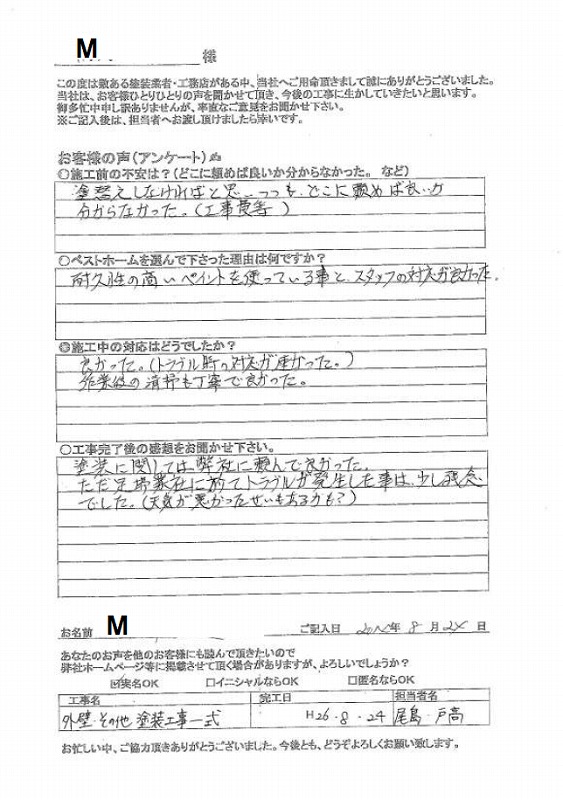 M 様
この度は数ある塗装業者・工務店がある中、当社へご用命頂きまして誠にありがとうございました。
当社は、お客様ひとりひとりの声を聞かせて頂き、今後の工事に生かしていきたいと思います。
御多忙中申し訳ありませんが、率直なご意見をお聞かせ下さい。
※ご記入後は、担当者へお渡し頂けましたら幸いです。
お客様の声(アンケート)✍
○施工前の不安は?(どこに頼めば良いか分からなかった。 など)
塗替えしなければと思いつつも、どこに頼めば良いか
分からなかった。(工事費等)
○ベストホームを選んで下さった理由は何ですか?
耐久性の高いペイントを使っている事と、スタッフの対応が良かった。
◎施工中の対応はどうでしたか?
良かった。(トラブル時の対応が速かった。)
作業後の清掃も丁寧で良かった。
○工事完了後の感想をお聞かせ下さい。
塗装に関しては弊社に頼んで良かった。
ただ足場業社に於てトラブルが発生した事は、少し残念
でした。(天気が悪かったせいもあるかも?)
お名前 M ご記入日 年 8 月 24 日
あなたのお声を他のお客様にも読んで頂きたいので
弊社ホームページ等に掲載させて頂く場合がありますが、よろしいでしょうか?
☑実名OK □イニシャルならOK □匿名ならOK
工事名 完工日 担当者名
外壁・その他 塗装工事一式 H26・8・24 尾島・戸高
お忙しい中、ご協力頂きありがとうございました。今後とも、どうぞよろしくお願い致します。